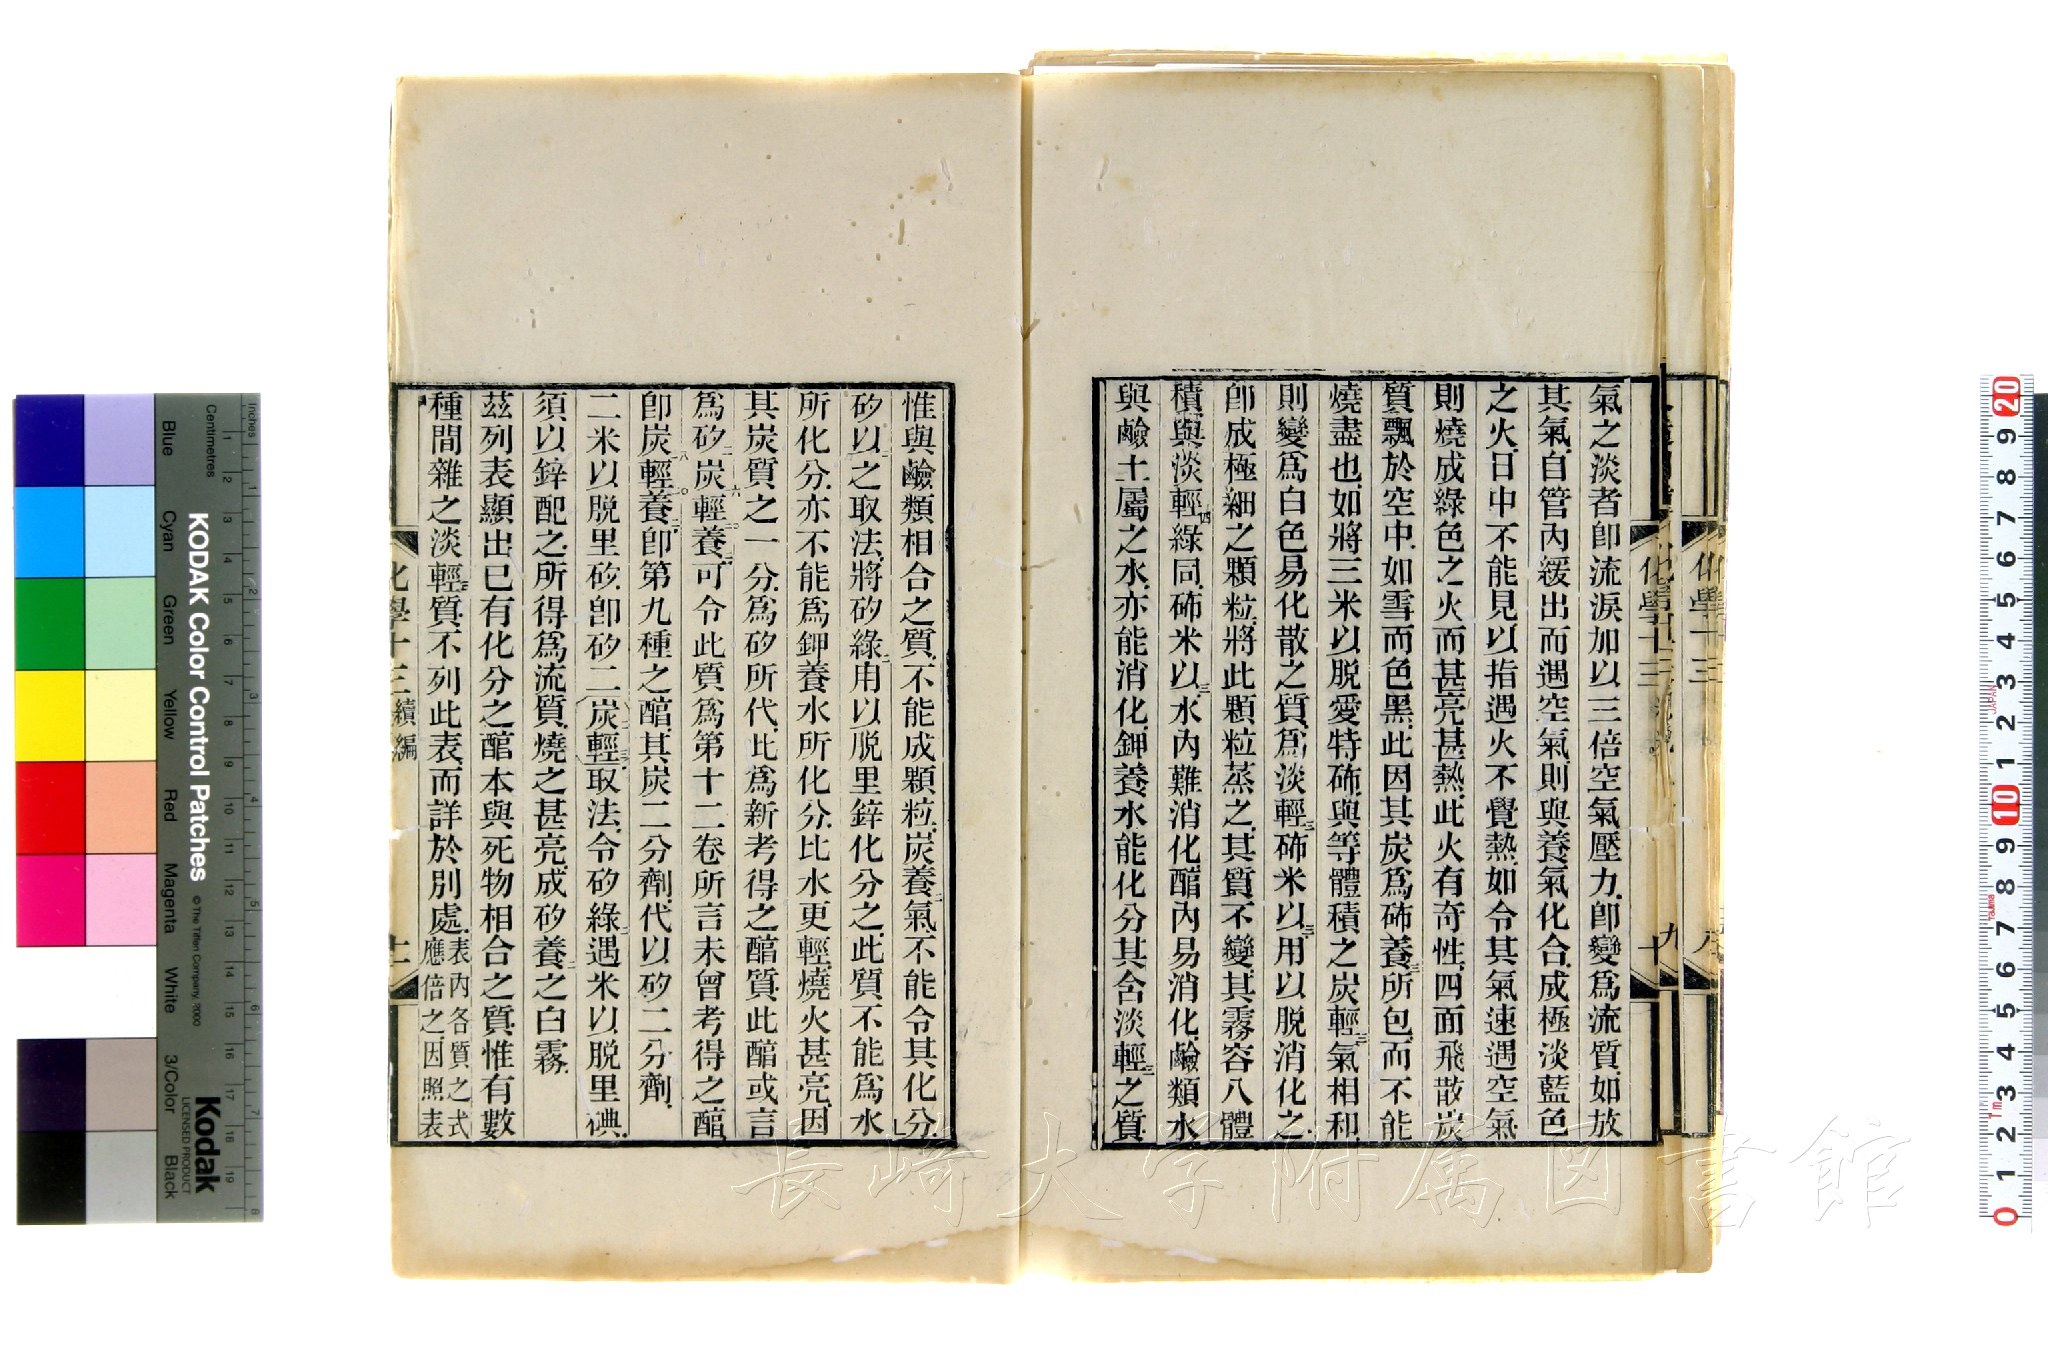 氣之淡者卽流淚加以三倍空氣壓力卽變爲流質如放
其氣自管內緩出而遇空氣則與養氣化合成極淡藍色
之火日中不能見以指遇火不覺熱如令其氣速遇空氣
則燒成綠色之火而甚亮甚熱此火有奇性四面飛散炭
質飄於空中如雪而色黑此因其炭爲硼養三所包而不能
燒盡也如將三米以脫愛特硼與等體積之炭輕三氣相和
則變爲白色易化散之質爲淡輕三硼米以三用以脫消化之
卽成極細之顆粒將此顆粒蒸之其質不變其霧容八體
積與淡輕四綠同硼米以三水內難消化醕內易消化鹼類水
與鹼土屬之水亦能消化鉀養水能化分其含淡輕三之質
惟與鹼類相合之質不能成顆粒炭養二氣不能令其化分
矽以二之取法將矽綠二用以脫里鋅化分之此質不能爲水
所化分亦不能爲鉀養水所化分比水更輕燒火甚亮因
其炭質之一分爲矽所代此爲新考得之醕質此醕或言
爲矽二炭六輕二〇養二可令此質爲第十二卷所言未曾考得之醕
卽炭八輕一〇養二卽第九種之醕其炭二分劑代以矽二分劑
二米以脫里矽卽矽二(炭二輕三)取法令矽綠二遇米以脫里碘
須以鋅配之所得爲流質燒之甚亮成矽養二之白霧
茲列表顯出已有化分之醕本與死物相合之質惟有數
種間雜之淡輕三質不列此表而詳於別處 表內各質之式
應倍之因照表
化學十三 續編
化學十三
Inches
Centimetres
Blue
Cyan
Green
Yellow
Red
Magenta
White
3/Color
Black
KODAK Color Control Patches
© The Tiffen Company, 2000
Kodak
LICENSED PRODUCT
JAPAN
Tajima
Tm
長崎大学附属図書館